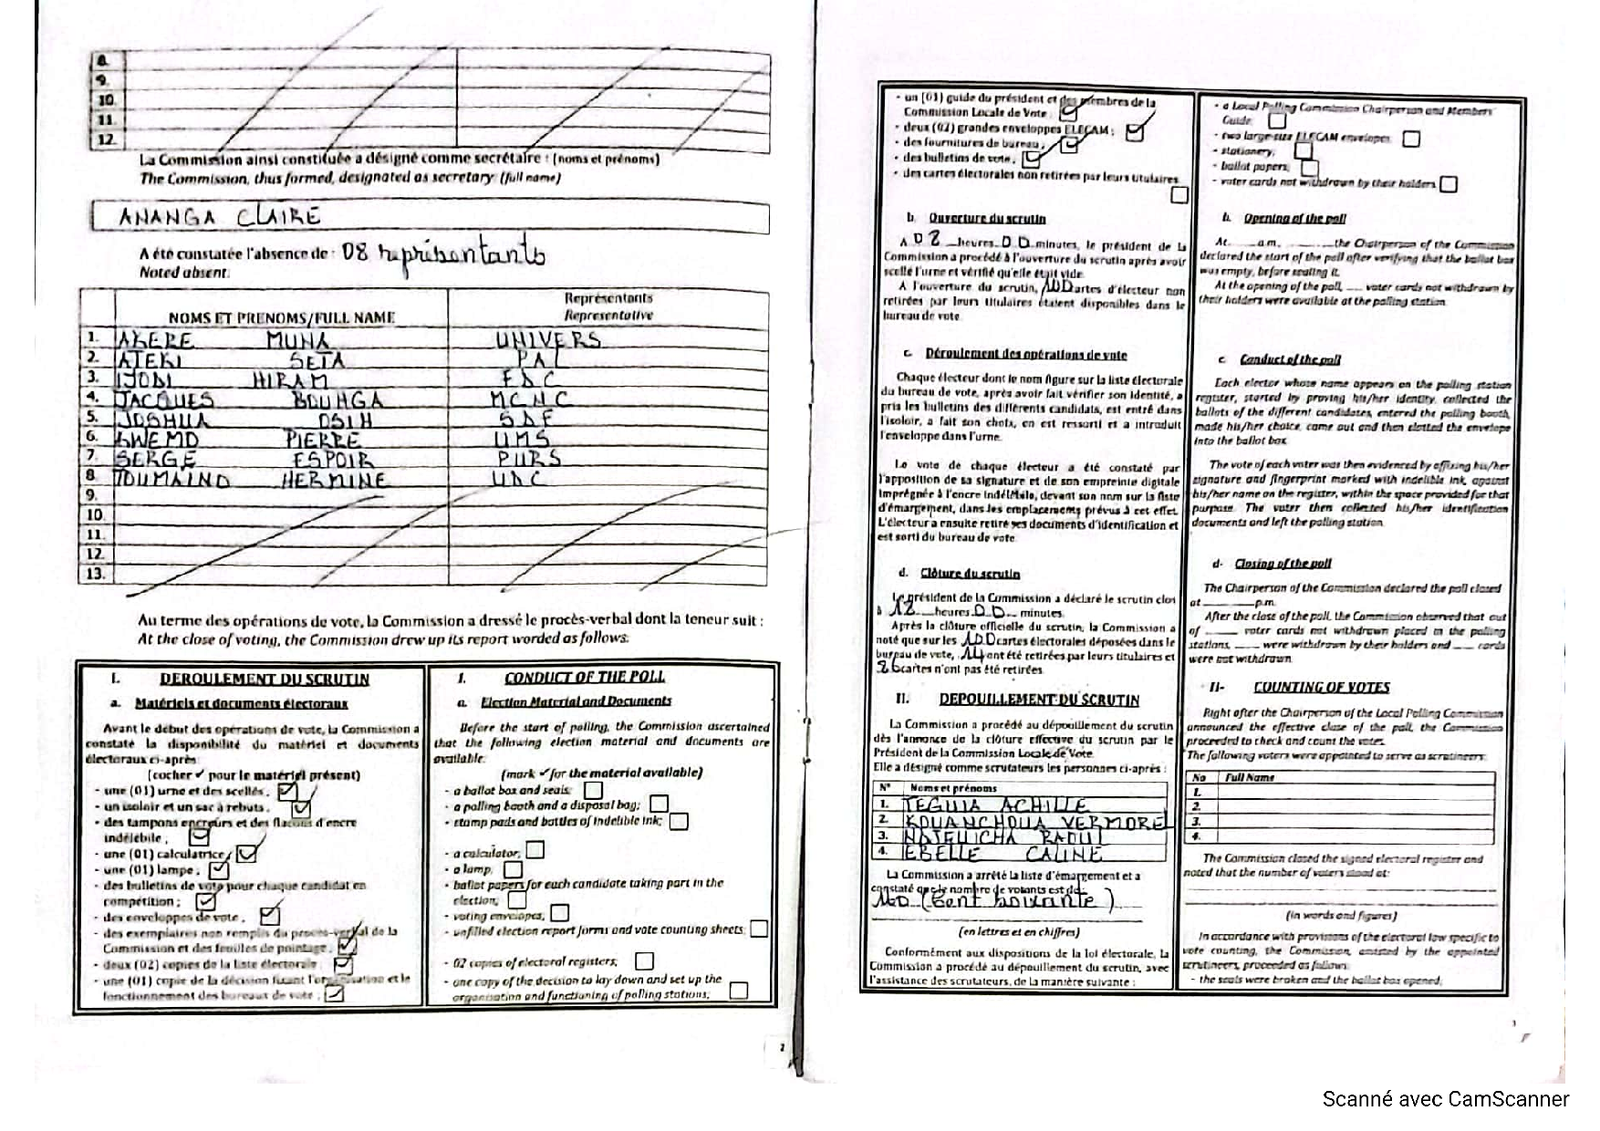 8.
9.
10.
11.
12.
La Commission ainsi constituée a désigné comme secrétaire : (noms et prénoms)
The Commission, thus formed, designated as secretary: (full name)
ANANGA CLAIRE
A été constatée l'absence de : 08 représentants
Noted absent:
NOMS ET PRENOMS/FULL NAME
Représentants
Representative
1. AKERE MUNA UNIVERS
2. ATEKI SETA PAL
3. IJODI HIRAM FDC
4. JACQUES BOUHGA MCNC
5. JOSHUA OSIH SDF
6. KWEMO PIERRE UMS
7. SERGE ESPOIR PURS
8 TOUMAINO HERMINE UDC
9.
10.
11.
12.
13.
Au terme des opérations de vote, la Commission a dressé le procès-verbal dont la teneur suit :
At the close of voting, the Commission drew up its report worded as follows:
I. DEROULEMENT DU SCRUTIN
a. Matériels et documents électoraux
Avant le début des opérations de vote, la Commission a
constaté la disponibilité du matériel et documents
électoraux ci-après
(cocher ✓ pour le matériel présent)
- une (01) urne et des scellés ;
- un isoloir et un sac à rebuts ;
- des tampons encreurs et des flacons d'encre
indélébile ;
- une (01) calculatrice ;
- une (01) lampe ;
- des bulletins de vote pour chaque candidat en
compétition ;
- des enveloppes de vote ;
- des exemplaires non remplis du procès-verbal de la
Commission et des feuilles de pointage ;
- deux (02) copies de la liste électorale ;
- une (01) copie de la décision fixant l'organisation et le
fonctionnement des bureaux de vote ;
I. CONDUCT OF THE POLL
a. Election Material and Documents
Before the start of polling, the Commission ascertained
that the following election material and documents are
available:
(mark ✓ for the material available)
- a ballot box and seals;
- a polling booth and a disposal bag;
- stamp pads and bottles of indelible ink;
- a calculator;
- a lamp;
- ballot papers for each candidate taking part in the
election;
- voting envelopes;
- unfilled election report forms and vote counting sheets;
- 02 copies of electoral registers;
- one copy of the decision to lay down and set up the
organisation and functioning of polling stations;
2
- un (01) guide du président et des membres de la
Commission Locale de Vote ;
- deux (02) grandes enveloppes ELECAM ;
- des fournitures de bureau ;
- des bulletins de vote ;
- des cartes électorales non retirées par leurs titulaires
b. Ouverture du scrutin
A 08 heures 00 minutes, le président de la
Commission a procédé à l'ouverture du scrutin après avoir
scellé l'urne et vérifié qu'elle était vide.
A l'ouverture du scrutin, 100 cartes d'électeur non
retirées par leurs titulaires étaient disponibles dans le
bureau de vote
c. Déroulement des opérations de vote
Chaque électeur dont le nom figure sur la liste électorale
du bureau de vote, après avoir fait vérifier son identité, a
pris les bulletins des différents candidats, est entré dans
l'isoloir, a fait son choix, en est ressorti et a introduit
l'enveloppe dans l'urne.
Le vote de chaque électeur a été constaté par
l'apposition de sa signature et de son empreinte digitale
imprégnée à l'encre indélébile, devant son nom sur la liste
d'émargement, dans les emplacements prévus à cet effet.
L'électeur a ensuite retiré ses documents d'identification et
est sorti du bureau de vote
d. Clôture du scrutin
Le président de la Commission a déclaré le scrutin clos
à 18 heures 00 minutes.
Après la clôture officielle du scrutin, la Commission a
noté que sur les 100 cartes électorales déposées dans le
bureau de vote, 14 ont été retirées par leurs titulaires et
86 cartes n'ont pas été retirées
II. DEPOUILLEMENT DU SCRUTIN
La Commission a procédé au dépouillement du scrutin
dès l'annonce de la clôture effective du scrutin par le
Président de la Commission Locale de Vote
Elle a désigné comme scrutateurs les personnes ci-après :
N° Noms et prénoms
1. TEGUIA ACHILLE
2. KOUANCHOUA VERMOREL
3. NDJEUICHA RAOUL
4. EBELLE CALINE
La Commission a arrêté la liste d'émargement et a
constaté que le nombre de votants est de :
160 (Cent soixante)
(en lettres et en chiffres)
Conformément aux dispositions de la loi électorale, la
Commission a procédé au dépouillement du scrutin, avec
l'assistance des scrutateurs, de la manière suivante :
- a Local Polling Commission Chairperson and Members'
Guide;
- two large-size ELECAM envelopes
- stationery;
- ballot papers;
- voter cards not withdrawn by their holders
b. Opening of the poll
At ___ a.m. ___ the Chairperson of the Commission
declared the start of the poll after verifying that the ballot box
was empty, before sealing it.
At the opening of the poll, ___ voter cards not withdrawn by
their holders were available at the polling station.
c. Conduct of the poll
Each elector whose name appears on the polling station
register, started by proving his/her identity, collected the
ballots of the different candidates, entered the polling booth,
made his/her choice, came out and then slotted the envelope
into the ballot box.
The vote of each voter was then evidenced by affixing his/her
signature and fingerprint marked with indelible ink, against
his/her name on the register, within the space provided for that
purpose. The voter then collected his/her identification
documents and left the polling station.
d- Closing of the poll
The Chairperson of the Commission declared the poll closed
at ___ p.m.
After the close of the poll, the Commission observed that out
of ___ voter cards not withdrawn placed in the polling
stations, ___ were withdrawn by their holders and ___ cards
were not withdrawn.
II- COUNTING OF VOTES
Right after the Chairperson of the Local Polling Commission
announced the effective close of the poll, the Commission
proceeded to check and count the votes.
The following voters were appointed to serve as scrutineers:
No Full Name
1.
2.
3.
4.
The Commission closed the signed electoral register and
noted that the number of voters stood at:
(in words and figures)
In accordance with provisions of the electoral law specific to
vote counting, the Commission, assisted by the appointed
scrutineers, proceeded as follows:
- the seals were broken and the ballot box opened;
3
Scanné avec CamScanner